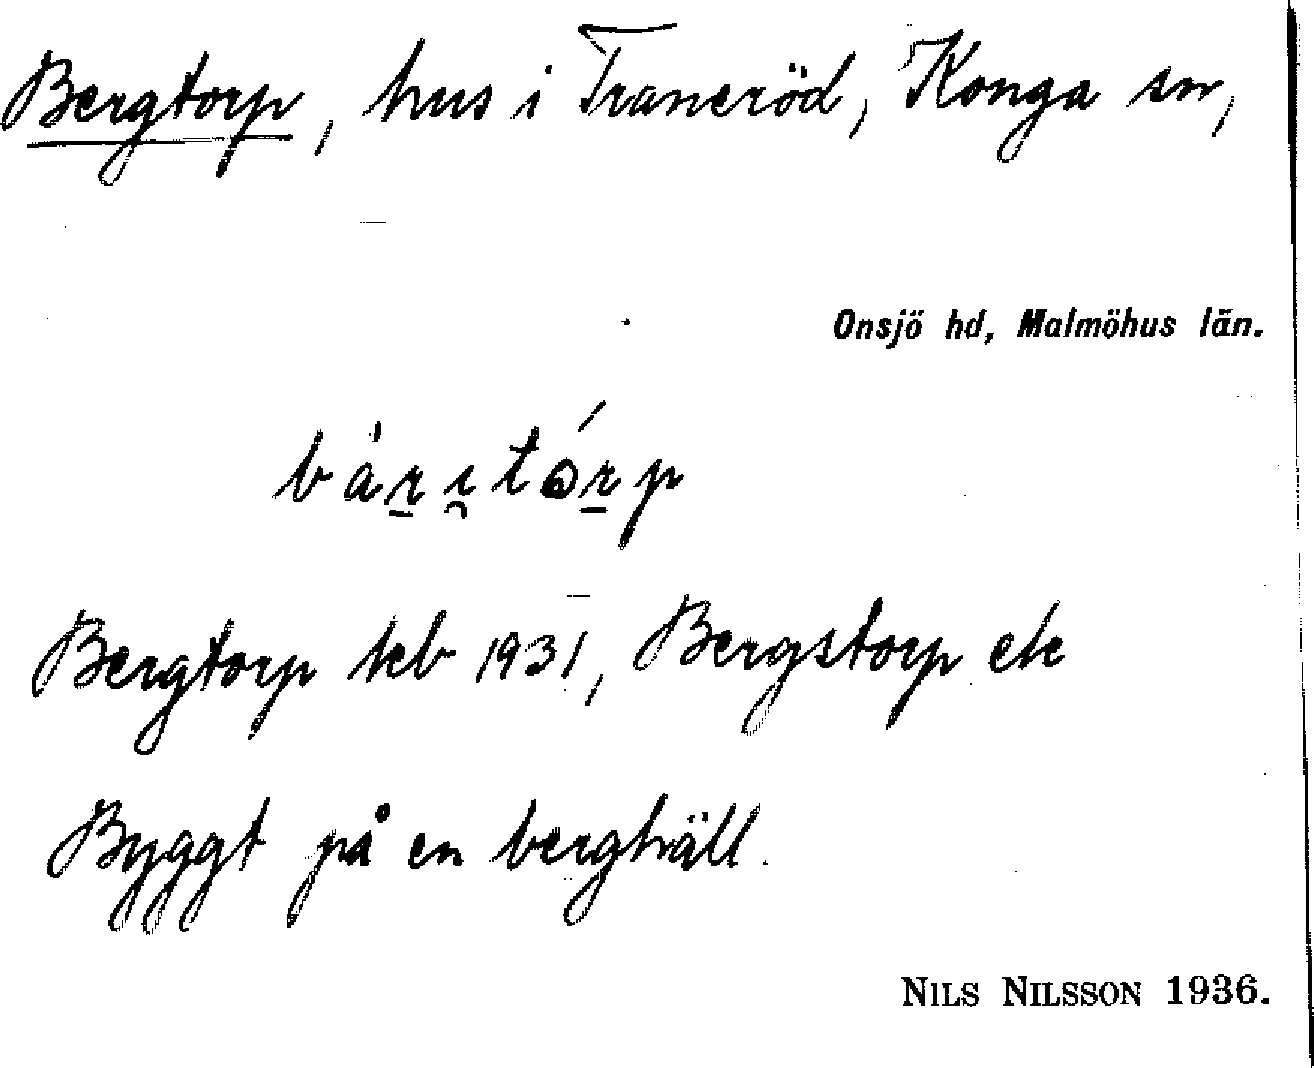 Bergtorp, hus i Traneröd, Konga sn,
Onsjö hd, Malmöhus län.
bàṟi̯tǿṟp
Bergtorp kb 1931, Bergstorp ek
Byggt på en berghäll.
NILS NILSSON 1936.